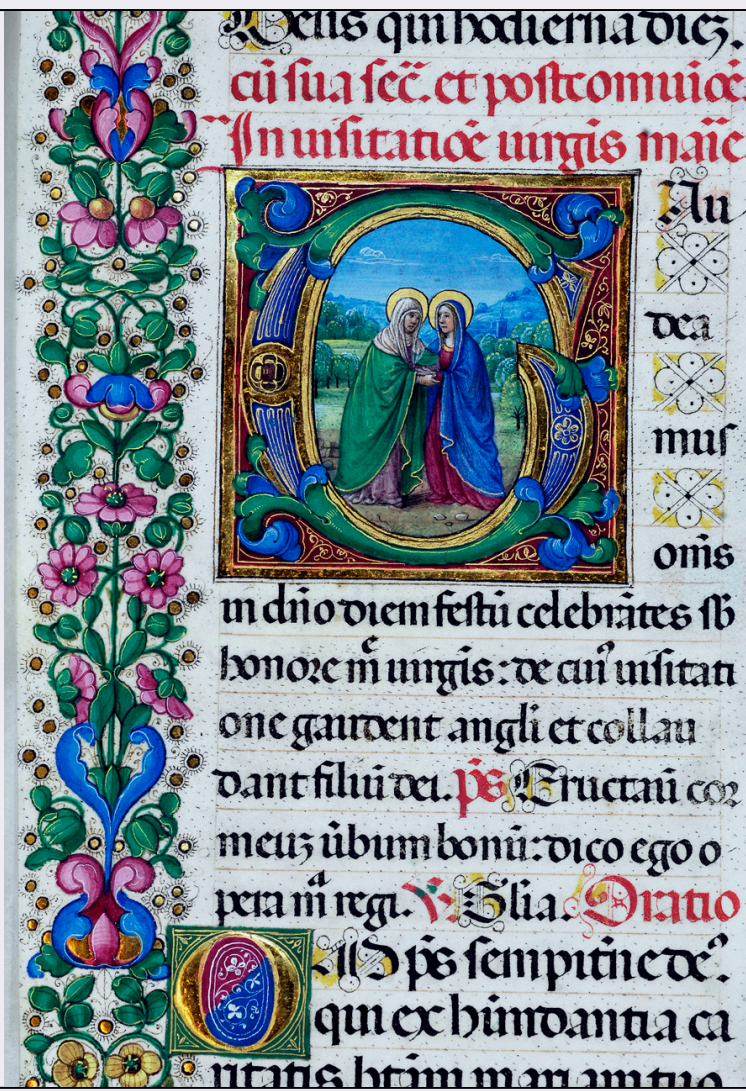 Deus qui hodierna diez.
cū sua sec̄. et postcomuiōe
In uisitatiōe uirgis maīe
GAu
dea
mus
om̄s
in dn̄o diem festū celebrātes sb̄
honore m̄ uirgīs: de cuiꝰ uisitati
one gaudent angli et collau
dant filiū dei. p̄s Eructaũ cor
meuz ūbum bonū: dico ego o
pera m̄ regi. V. Glia. Oratio
OMp̄s sempitn̄e deꝰ.
qui ex hūndantia ca
ritatis btām mariam tuo